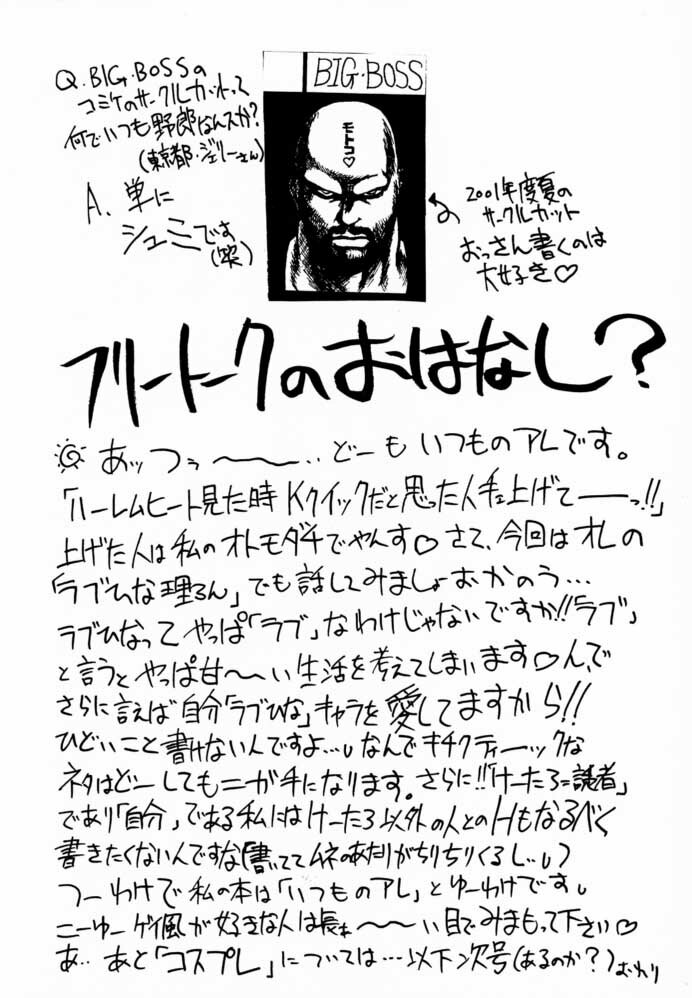 Q.BIG.BOSSの
コミケのサークルカットって
何でいつも野郎なんスか?
(東京都・ジェリーさん)
A.単に
シュミです
(笑)
BIG・BOSS
モトコ♡
2001年度夏の
サークルカット
おっさん書くのは
大好き♡
フリートークのおはなし?
あッつぅ〜〜‥どーも いつものアレです。
「ハーレムヒート見た時Kクイックだと思った人手上げてーーっ!!」
上げた人は私のオトモダチでやんす♡さて、今回はオレの
「ラブひな理ろん」でも話してみましょおかのう…
ラブひなってやっぱ「ラブ」なわけじゃないですか!!「ラブ」
と言うとやっぱ甘〜〜い生活を考えてしまいます♡んで
さらに言えば自分「ラブひな」キャラを愛してますから!!
ひどいこと書けない人ですよ…なんでキチクティーックな
ネタはどーしてもニガ手になります。さらに!!「けーたろ=読者」
であり「自分」である私にはけーたろ以外の人とのHもなるべく
書きたくないんですな(書いててムネのあたりがちりちりくるし…)
つーわけで私の本は「いつものアレ」とゆーわけです
こーゆー ゲイ風が好きな人は長ぁ〜〜い目でみまもって下さい♡
あ‥あと「コスプレ」については…以下次号(あるのか?)おわり